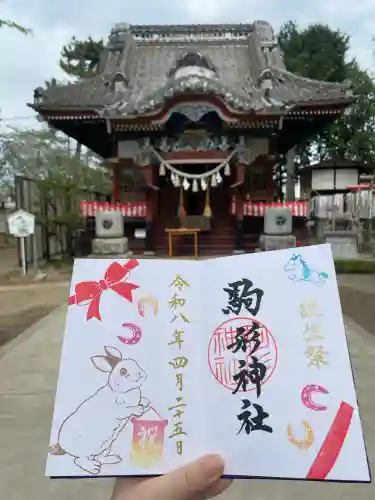 誕生祭
駒形神社
令和八年四月二十五日
祝